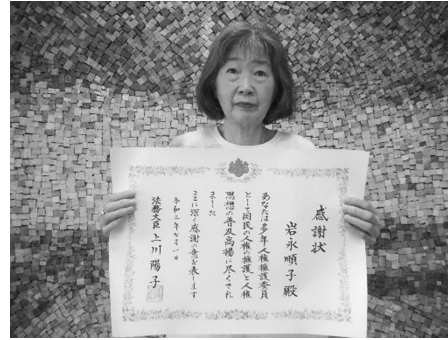 感謝状
岩永順子殿
あなたは多年人権擁護委員
として国民の人権の擁護と人権
思想の普及高揚に尽くされ
ました
ここに深く感謝の意を表します
令和二年七月一日
法務大臣 上川陽子